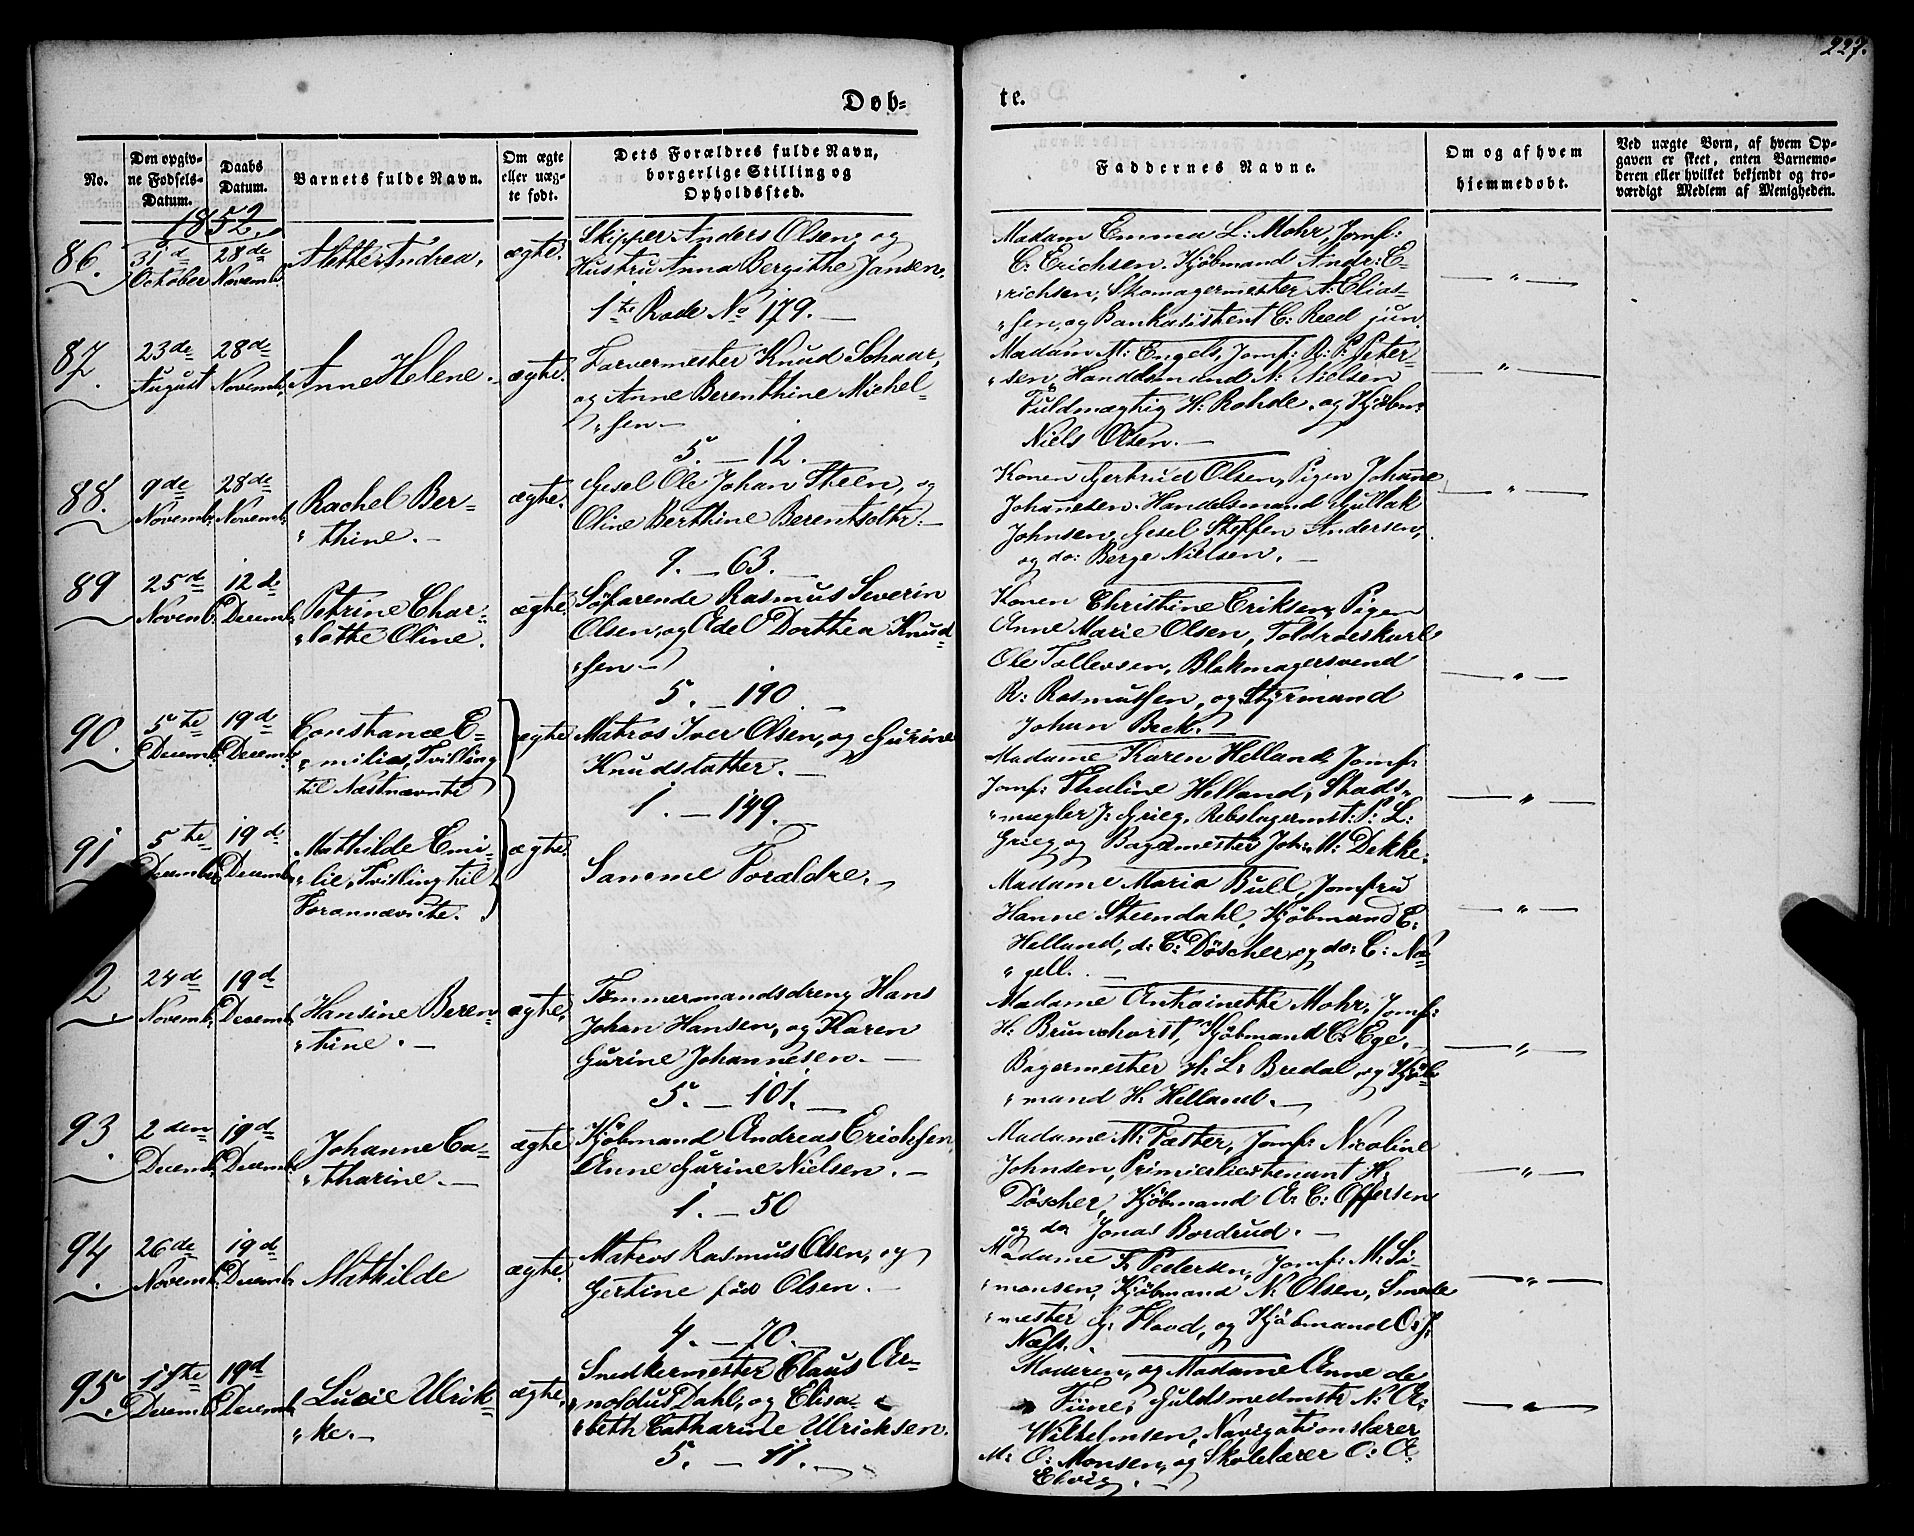 227.
Døb-
te.
No.
Den opgiv-
ne Fødsels-
Datum.
Daabs
Datum.
Barnets fulde Navn.
Om ægte
eller uæg-
te født.
Dets Forældres fulde Navn,
borgerlige Stilling og
Opholdssted.
Faddernes Navne.
Om og af hvem
hjemmedøbt.
Ved uægte Børn, af hvem Op-
gaven er skeet, enten Barnemo-
deren eller hvilket bekjendt og tro-
værdigt Medlem af Menigheden.
1852.
86.
31d
October
28de
Novemb.
Alette Andrea.
ægte.
Skipper Anders Olsen, og
Hustru Anna Bergithe Jansen.
1te Rode No 179.
Madam Emma L: Mohr, Jomf:
C: Erichsen. Kjøbmand Andr: E-
richsen, Skomagermester A: Elias-
sen, og Bankassistent C: Reed jun.
87.
23de
August
28de
Novemb.
Anne Helene.
ægte.
Farvermester Knud Schaar,
og Anne Berenthine Michel-
sen
5. — 12.
Madam M: Engels, Jomf: R: P: Peter-
sen, Handelsmand N: Nielsen
Fuldmægtig H: Rohde, og Kjøbm:
Niels Olsen.
88.
9de
Novemb.
28de
Novemb.
Rachel Ber-
thine.
ægte.
Gesel Ole Johan Steen, og
Oline Berthine Berentsdtr.
9. — 63.
Konen Gertrud Olsen, Pigen Johane
Johanesen. Handelsmand Gullak
Johnsen, Gesel Steffen Andersen,
og do: Berge Nielsen.
89
25d
Novemb.
12d
Decemb.
Petrine Char-
lotte Oline.
ægte.
Søfarende Rasmus Severin
Olsen, og Edel Dorthea Knud-
sen
5. — 190.
Konen Christine Eriksen, Pigen
Anne Marie Olsen, Toldroeskarl
Ole Tollevsen, Blokmagersvend
R: Rasmussen, og Styrmand
Johan Beck.
90.
5te
Decemb.
19d
Decemb.
Constance E-
milie, Tvilling
til Næstnævnte
ægte
Matros Iver Olsen, og Gurine
Knudsdatter.
1. — 149.
Madame Karen Helland, Jomf:
Jomf: Thaline Helland, Stads-
mægler J: Grieg, Rebslagermst: P: L:
Grieg, og Bagermester Joh: M: Dekke.
91
5te
Decemb.
19d
Decemb.
Mathilde Emi-
lie, Tvilling til
Forannævnte.
ægte.
Samme Forældre.
Madame Maria Bull, Jomfru
Hanne Steendahl, Kjøbmand E:
Helland, d: C: Döscher, og do: C: Na-
gell.
2
24de
Novemb.
19d
Decemb.
Hansine Beren-
tine.
ægte.
Tømmermandsdreng Hans
Johan Hansen, og Karen
Gurine Johannesen.
5. — 101.
Madame Antoinette Mohr, Jomf:
H: Brunchorst, Kjøbmand C: Ege,
Bagermester H: L: Bredal, og Kjøb-
mand H: Helland.
93.
2den
Decemb.
19d
Decemb.
Johanne Ca-
tharine.
ægte
Kjøbmand Andreas Erichsen
Anne Gurine Nielsen.
1. — 50
Madame M: Faster, Jomf: Nicoline
Johnsen, Primierlieutenant H:
Döscher, Kjøbmand A: C: Offersen
og do Jonas Bordrud.
94.
26de
Novemb.
19d
Decemb.
Mathilde
ægte.
Matros Rasmus Olsen, og
Gertine fød Olsen.
4. — 70.
Madame F: Pedersen, Jomf: M: Si-
monsen, Kjøbmand N: Olsen, Smede-
mester G: Flood, og Kjøbmand O: J:
Næss.
95.
11te
Decemb.
19d
Decemb.
Lucie Ulrik-
ke.
ægte.
Snedkermester Claus Ar-
noldus Dahl, og Elisa-
beth Catharine Ulricksen.
5. — 11.
Moderen, og Madame Anne de
Fine, Guldsmedmstr N: A:
Wilhelmsen, Navigationslærer
M: O: Monsen, og Skolelærer O: A:
Elvig.